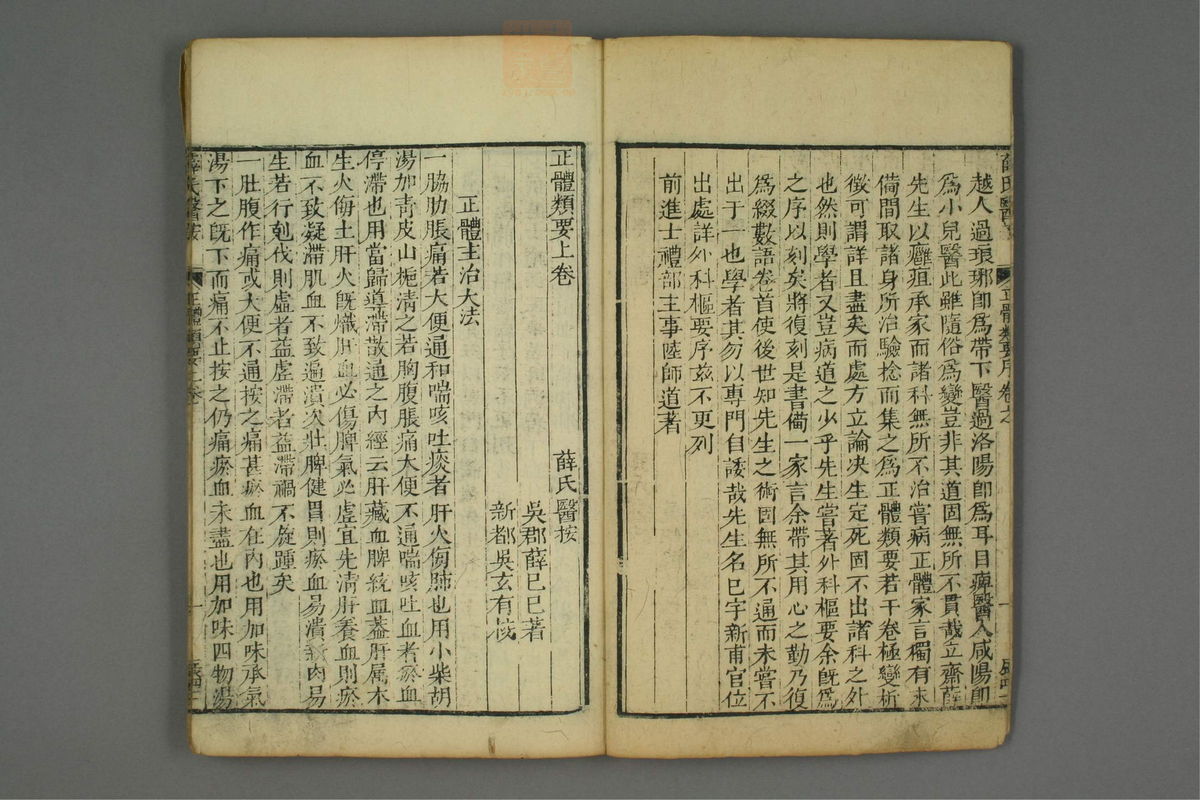 越人過瑯琊卽爲帶下醫過洛陽卽爲耳目痺醫入咸陽卽
爲小兒醫此雖隨俗爲變豈非其道固無所不貫哉立齋薛
先生以癰疽承家而諸科無所不治嘗病正體家言獨有未
備間取諸身所治驗捴而集之爲正體類要若干卷極變析
微可謂詳且盡矣而處方立論决生定死固不出諸科之外
也然則學者又豈病道之少乎先生嘗著外科樞要余旣爲
之序以刻矣將復刻是書備一家言余帶其用心之勤乃復
爲綴數語卷首使後世知先生之術固無所不通而未嘗不
出于一也學者其勿以專門自諉哉先生名已字新甫官位
出處詳外科樞要序兹不更列
前進士禮部主事陸師道著
正體類要上卷 薛氏醫按
吳郡薛已已著
新都吳玄有校
正體主治大法
一脇肋脹痛若大便通和喘咳吐痰者肝火侮肺也用小柴胡
湯加青皮山梔清之若胸腹脹痛大便不通喘咳吐血者瘀血
停滯也用當歸導滯散通之内經云肝藏血脾統血葢肝属木
生火侮土肝火旣熾肝血必傷脾氣必虛宜先清肝養血則瘀
血不致凝滯肌血不致遍潰次壯脾健胃則瘀血易潰新肉易
生若行剋伐則虛者益虛滯者益滯禍不旋踵矣
一肚腹作痛或大便不通按之痛甚瘀血在内也用加味承氣
湯下之旣下而痛不止按之仍痛瘀血未盡也用加味四物湯